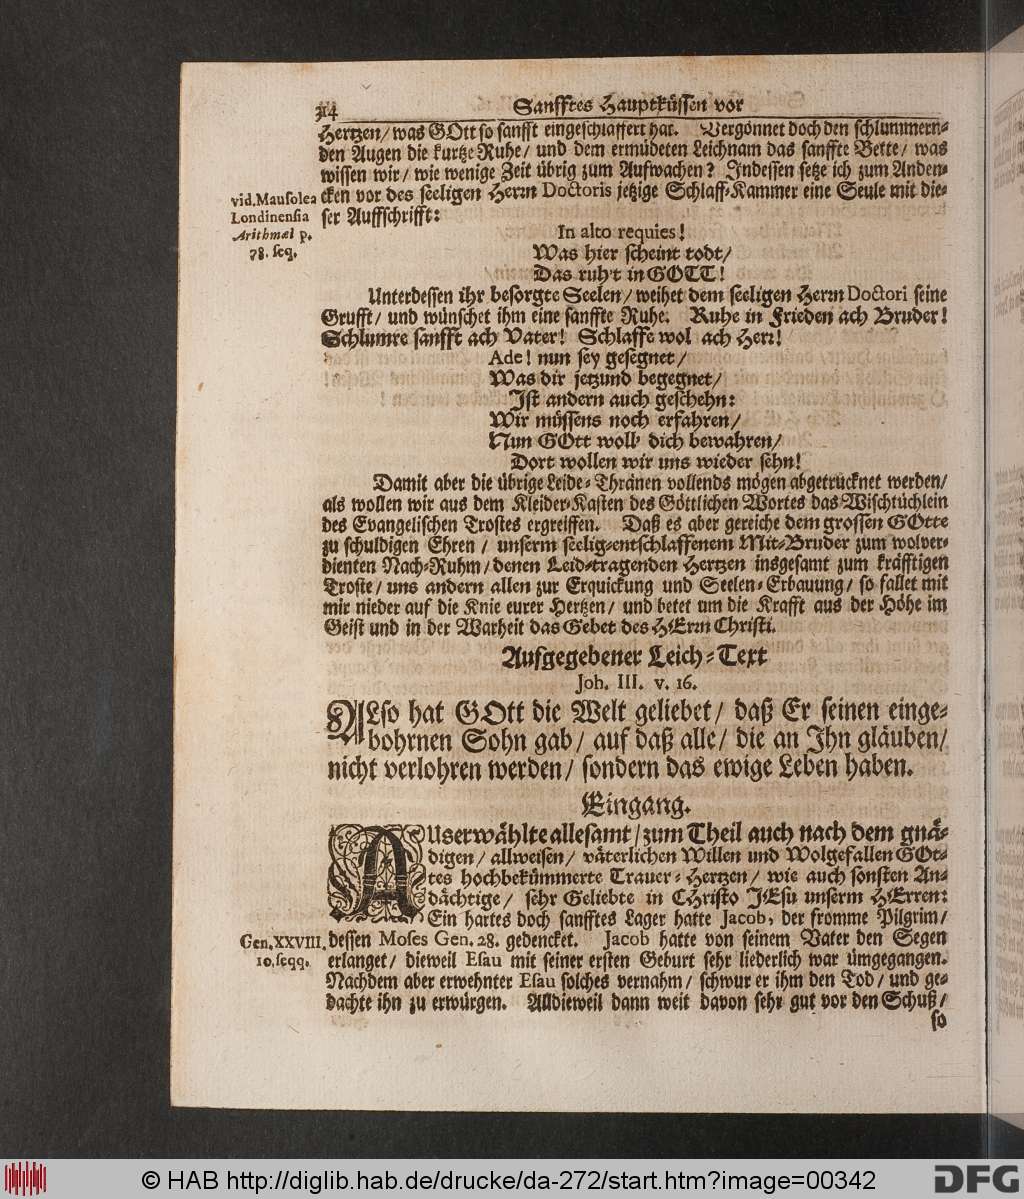 314
Sanfftes Hauptküssen vor
Hertzen/ was GOtt so sanfft eingeschläffert hat. Vergönnet doch den schlummern-
den Augen die kurtze Ruhe/ und dem ermüdeten Leichnam das sanffte Bette/ was
wissen wir/ wie wenige Zeit übrig zum Aufwachen? Indessen setze ich zum Anden-
cken vor des seeligen Herrn Doctoris jetzige Schlaff-Kammer eine Seule mit die-
ser Auffschrifft:
vid. Mausolea
Londinensia
Arithmæl p.
78. seq.
In alto requies!
Was hier scheint todt/
Das ruh't in GOTT!
Unterdessen ihr besorgte Seelen/ weihet dem seeligen Herrn Doctori seine
Grufft/ und wünschet ihm eine sanffte Ruhe. Ruhe in Frieden ach Bruder!
Schlumre sanfft ach Vater! Schlaffe wol ach Herr!
Ade! nun sey gesegnet/
Was dir jetzund begegnet/
Ist andern auch geschehn:
Wir müssens noch erfahren/
Nun GOtt woll' dich bewahren/
Dort wollen wir uns wieder sehn!
Damit aber die übrige Leide-Thränen vollends mögen abgetrücknet werden/
als wollen wir aus dem Kleider-Kasten des Göttlichen Wortes das Wischtüchlein
des Evangelischen Trostes ergreiffen. Daß es aber gereiche dem grossen GOtte
zu schuldigen Ehren/ unserm seelig-entschlaffenem Mit-Bruder zum wolver-
dienten Nach-Ruhm/ denen Leid-tragenden Hertzen insgesamt zum kräfftigen
Troste/ uns andern allen zur Erquickung und Seelen-Erbauung/ so fallet mit
mir nieder auf die Knie eurer Hertzen/ und betet um die Krafft aus der Höhe im
Geist und in der Warheit das Gebet des HErrn Christi.
Aufgegebener Leich-Text
Joh. III. v. 16.
ALso hat GOtt die Welt geliebet/ daß Er seinen einge-
bohrnen Sohn gab/ auf daß alle/ die an Ihn gläuben/
nicht verlohren werden/ sondern das ewige Leben haben.
Eingang.
AUserwählte allesamt/ zum Theil auch nach dem gnä-
digen/ allweisen/ väterlichen Willen und Wolgefallen GOt-
tes hochbekümmerte Trauer-Hertzen/ wie auch sonsten An-
dächtige/ sehr Geliebte in CHristo JEsu unserm HErren:
Ein hartes doch sanfftes Lager hatte Jacob, der fromme Pilgrim/
Gen. XXVIII.
10. seqq.
dessen Moses Gen. 28. gedencket. Jacob hatte von seinem Vater den Segen
erlanget/ dieweil Esau mit seiner ersten Geburt sehr liederlich war ümgegangen.
Nachdem aber erwehnter Esau solches vernahm/ schwur er ihm den Tod/ und ge-
dachte ihn zu erwürgen. Alldieweil dann weit davon sehr gut vor den Schuß/
so
© HAB http://diglib.hab.de/drucke/da-272/start.htm?image=00342
DFG